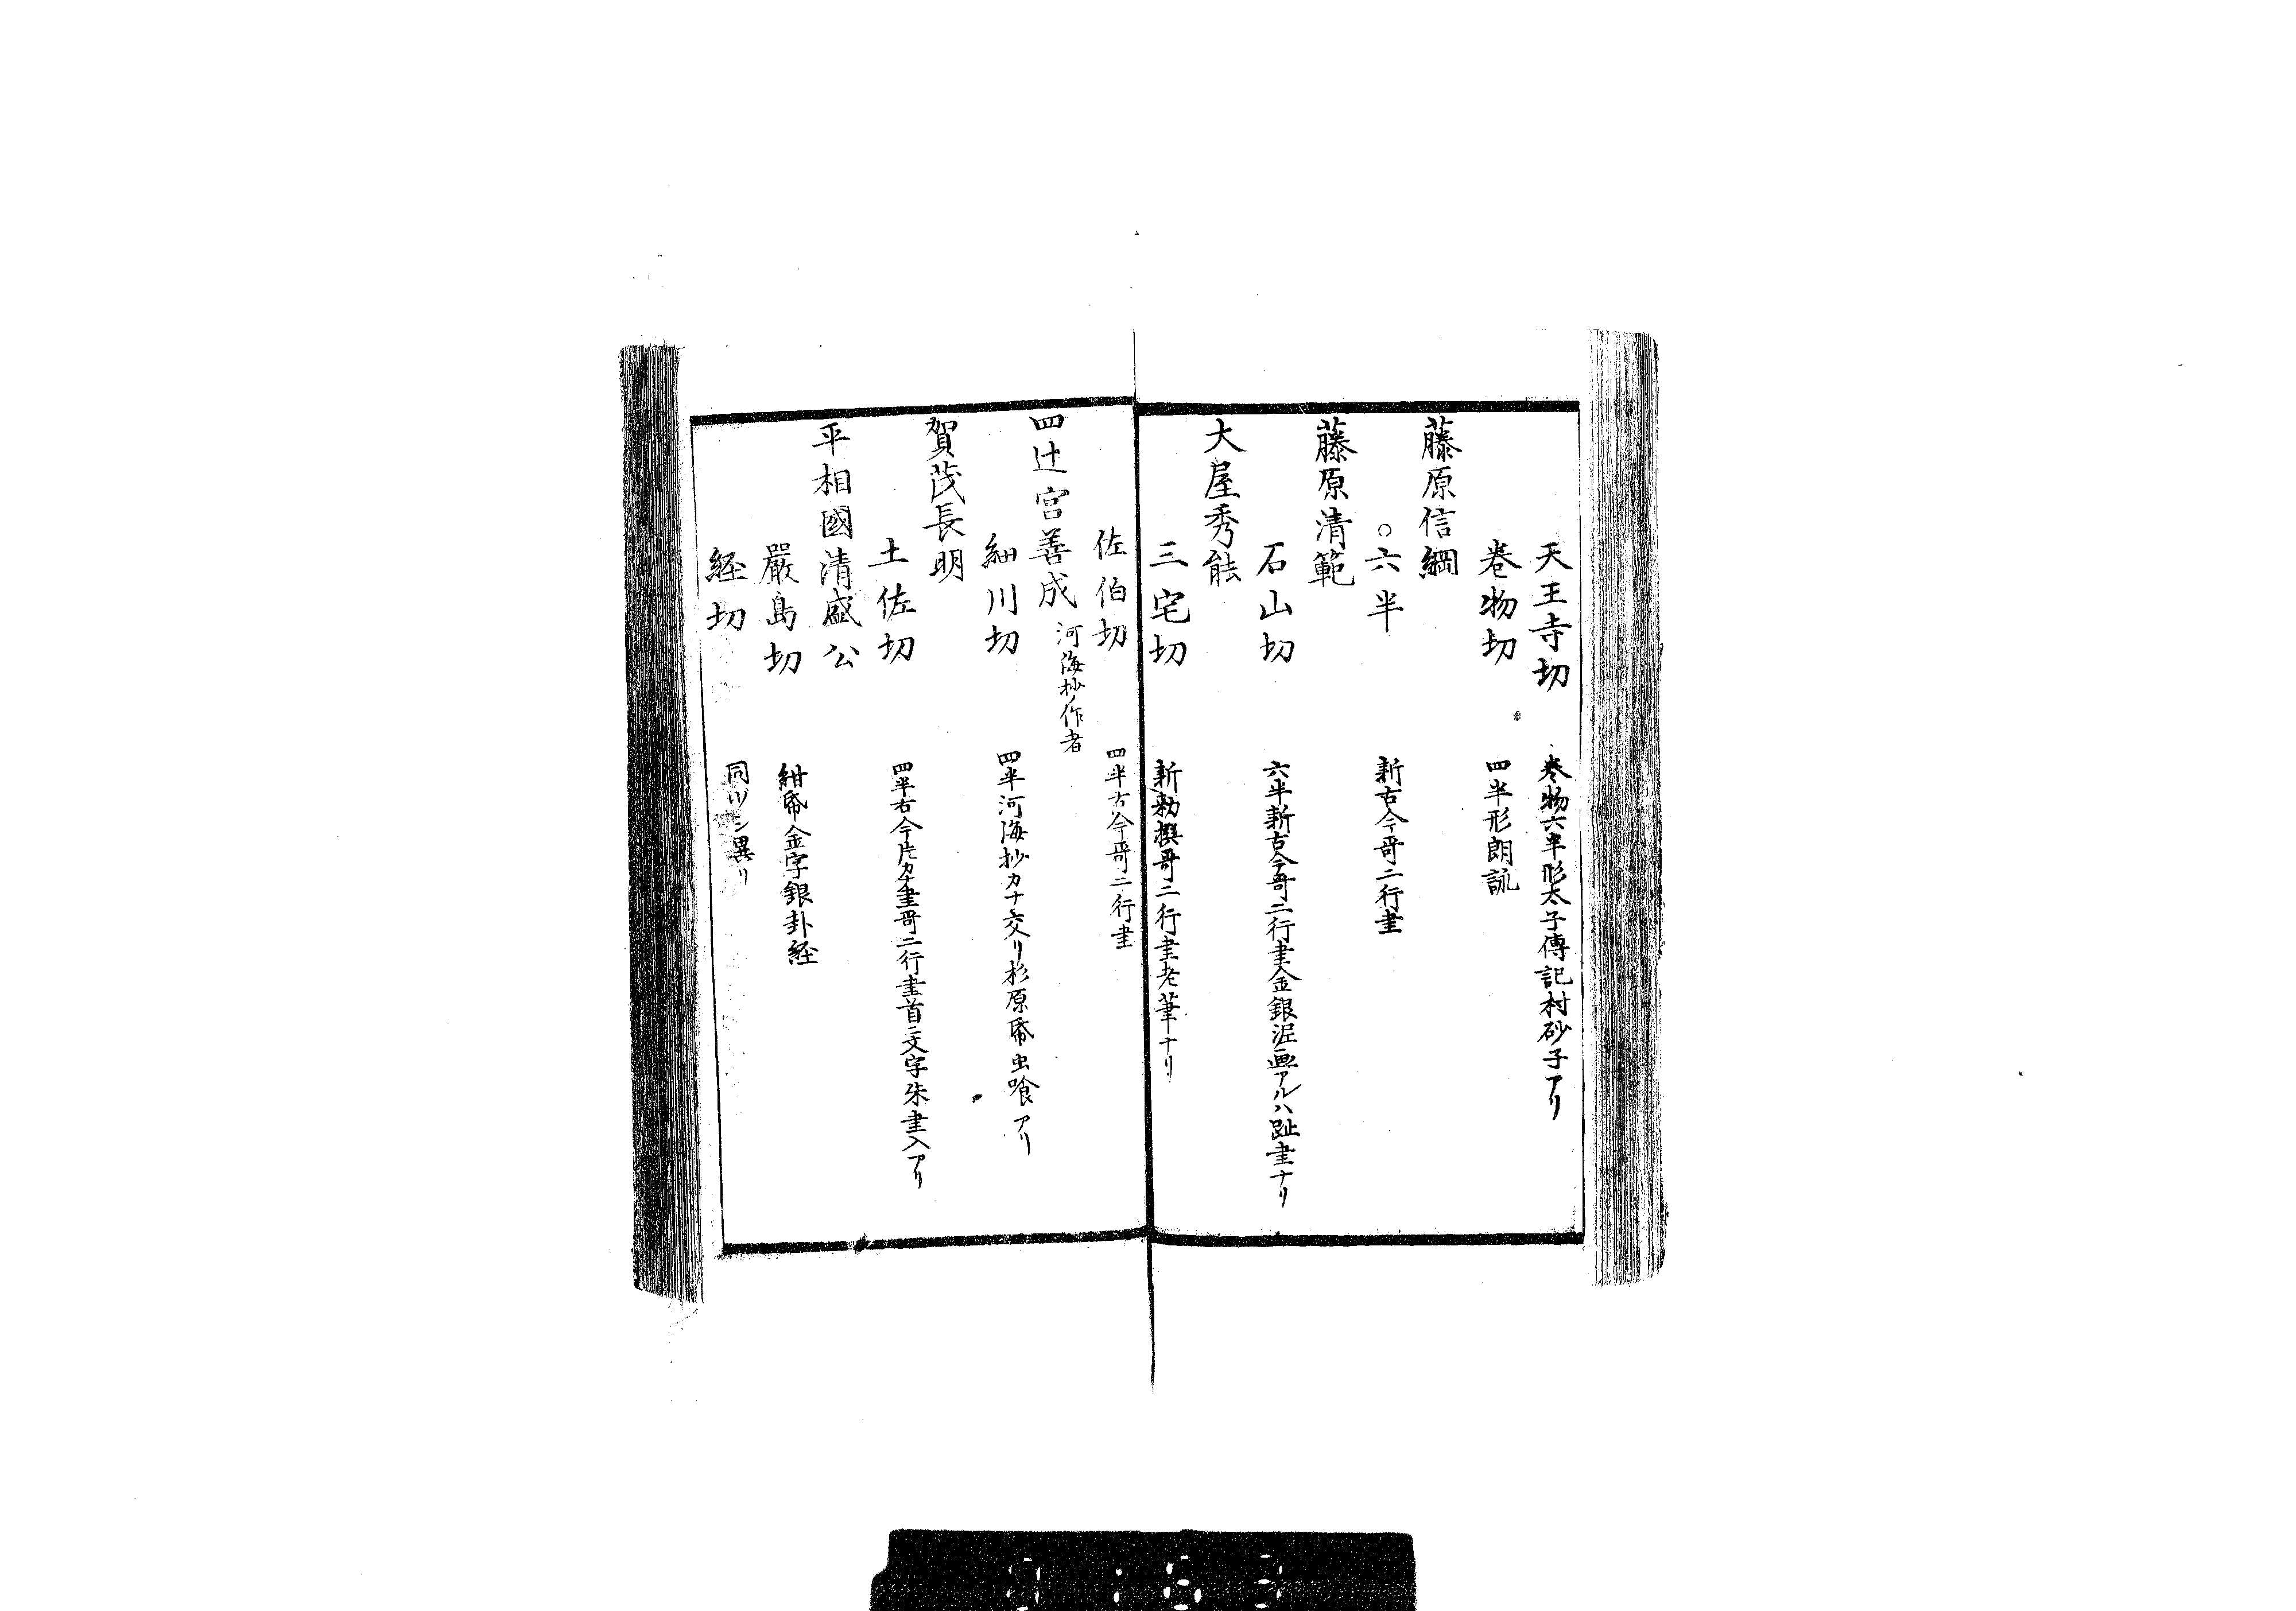 天王寺切　巻物六半形太子傳記村砂子アリ
巻物切　四半形朗詠
藤原信綱
○六半　新古今哥二行書
藤原清範
石山切　六半新古今哥二行書金銀泥画アルハ趾書ナリ
大屋秀能
三宅切　新勅撰哥二行書老筆ナリ
佐伯切　四半古今哥二行書
四辻宮善成 河海抄ノ作者
細川切　四半河海抄カナ交リ杉原帋虫喰アリ
賀茂長明
土佐切　四半古今片カナ書哥二行書首ニ文字朱書入アリ
平相國清盛公
嚴島切　紺帋金字銀卦経
経切　同少シ異リ